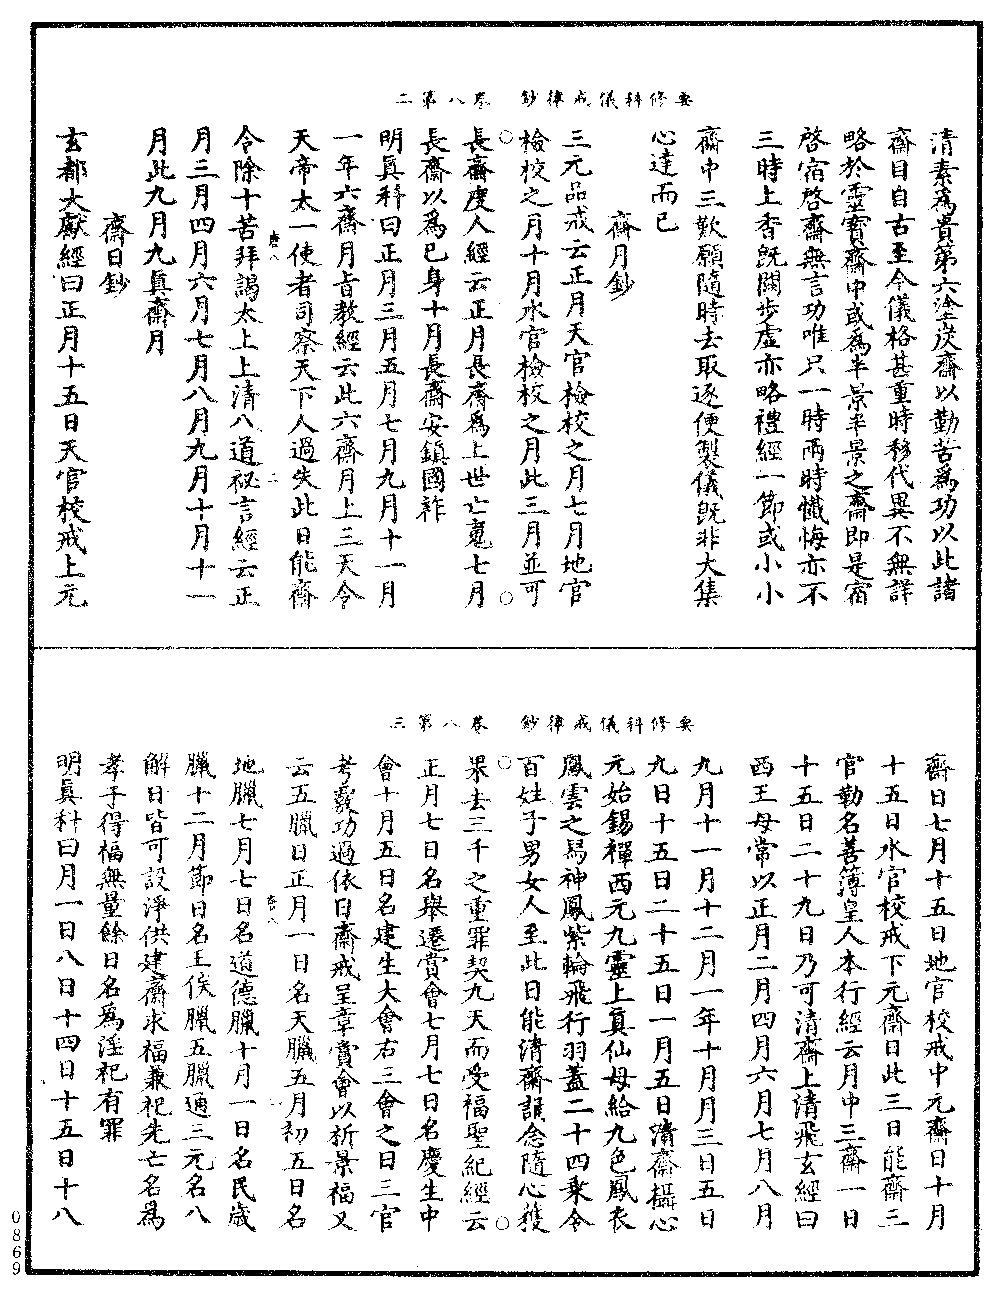 要修科儀戒律鈔　卷八第二
清素為貴第六塗炭齋以勤苦為功以此諸
齋目自古至今儀格甚重時移代異不無詳
略於靈寶齋中或為半景半景之齋即是宿
啓宿啓齋無言功唯只一時兩時懺悔亦不
三時上香既闕步虛亦略禮經一節或小小
齋中三歎願隨時去取逐便製儀既非大集
心達而已
齋月鈔
三元品戒云正月天官檢校之月七月地官
檢校之月十月水官檢校之月此三月並可
長齋度人經云正月長齋為上世亡䰟七月
長齋以為已身十月長齋安鎮國祚
明真科曰正月三月五月七月九月十一月
一年六齋月旨教經云此六齋月上三天令
天帝太一使者司察天下人過失此日能齋
唐八　二
令除十苦拜謁太上上清八道祕言經云正
月三月四月六月七月八月九月十月十一
月此九月九真齋月
齋日鈔
玄都大獻經曰正月十五日天官校戒上元
要修科儀戒律鈔　卷八第三
齋日七月十五日地官校戒中元齋日十月
十五日水官校戒下元齋日此三日能齋三
官勒名善簿皇人本行經云月中三齋一日
十五日二十九日乃可清齋上清飛玄經曰
西王母常以正月二月四月六月七月八月
九月十一月十二月一年十月月三日五日
九日十五日二十五日一月五日清齋攝心
元始錫禪西元九靈上真仙母給九色鳳衣
鳳雲之舄神鳳紫輪飛行羽蓋二十四乘令
百姓子男女人至此日能清齋誦念隨心獲
果去三千之重罪契九天而受福聖紀經云
正月七日名舉遷賞會七月七日名慶生中
會十月五日名建生大會右三會之日三官
考覈功過依日齋戒呈章賞會以祈景福又
云五臘日正月一日名天臘五月初五日名
卷八　一
地臘七月七日名道德臘十月一日名民歲
臘十二月節日名王侯臘五臘通三元名八
解日皆可設淨供建齋求福兼祀先亡名為
孝子得福無量餘日名為淫祀有罪
明真科曰月一日八日十四日十五日十八
0869